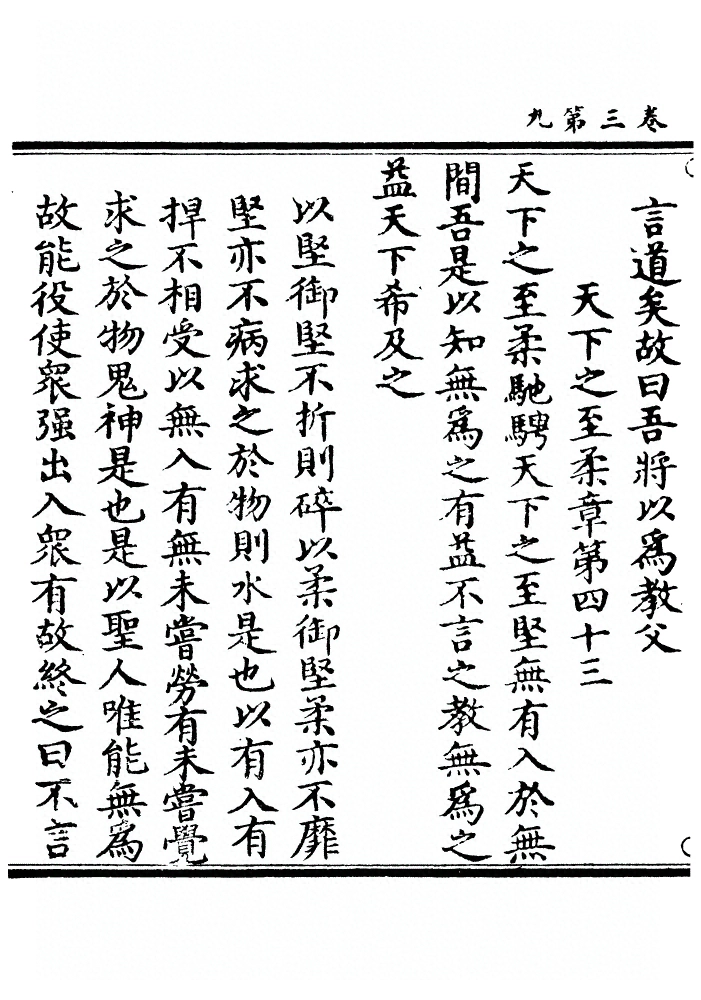 卷三第九
言道矣故曰吾將以爲教父
天下之至柔章第四十三
天下之至柔馳騁天下之至堅無有入於無
間吾是以知無爲之有益不言之教無爲之
益天下希及之
以堅御堅不折則碎以柔御堅柔亦不靡
堅亦不病求之於物則水是也以有入有
捍不相受以無入有無未嘗勞有未嘗覺
求之於物鬼神是也是以聖人唯能無爲
故能役使衆强出入衆有故終之曰不言